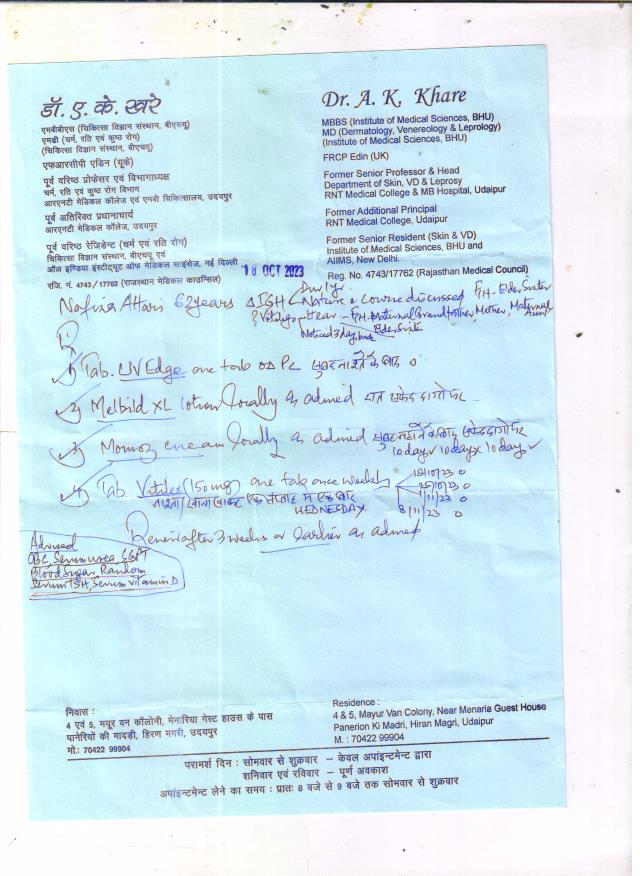 डॉ. ए. के. खरे
एमबीबीएस (चिकित्सा विज्ञान संस्थान, बीएचयू)
एमडी (चर्म, रति एवं कुष्ठ रोग)
(चिकित्सा विज्ञान संस्थान, बीएचयू)
एफआरसीपी एडिन (यूके)
पूर्व वरिष्ठ प्रोफेसर एवं विभागाध्यक्ष
चर्म, रति एवं कुष्ठ रोग विभाग
आरएनटी मेडिकल कॉलेज एवं एमबी चिकित्सालय, उदयपुर
पूर्व अतिरिक्त प्रधानाचार्य
आरएनटी मेडिकल कॉलेज, उदयपुर
पूर्व वरिष्ठ रेजिडेंट (चर्म एवं रति रोग)
चिकित्सा विज्ञान संस्थान, बीएचयू एवं
ऑल इण्डिया इंस्टीट्यूट ऑफ मेडिकल साइंसेज, नई दिल्ली
रजि. नं. 4743/17762 (राजस्थान मेडिकल काउन्सिल)
Dr. A. K. Khare
MBBS (Institute of Medical Sciences, BHU)
MD (Dermatology, Venereology & Leprology)
(Institute of Medical Sciences, BHU)
FRCP Edin (UK)
Former Senior Professor & Head
Department of Skin, VD & Leprosy
RNT Medical College & MB Hospital, Udaipur
Former Additional Principal
RNT Medical College, Udaipur
Former Senior Resident (Skin & VD)
Institute of Medical Sciences, BHU and
AIIMS, New Delhi.
Reg. No. 4743/17762 (Rajasthan Medical Council)
18 OCT 2023
62 years Δ IGH Nature & course discussed F/H - Elder Sister
F/H - Maternal Grandfather, Mother, Maternal Aunt
Noticed 3 days back Elder Sister
1) Tab. LIV Edge one tab OD PC सुबह नाश्ते के बाद
2) Melbild XL lotion locally as advised रात सफेद दागो पर
3) Momoz cream locally as advised सुबह नहाने के बाद सफेद दागो पर
10 day 10 day x 10 day
4) Tab. Vitilex (150 mg) one tab once weekly
18/10/23 0
25/10/23 0
1/11/23 0
8/11/23 0
नाश्ता/खाना खाकर एक सप्ताह में एक बार
WEDNESDAY
Review after 3 weeks or earlier as advised
Advised
CBC, Serum urea, SGPT
Blood Sugar Random
Serum TSH, Serum Vitamin D
निवास :
4 एवं 5, मयूर वन कॉलोनी, मेनारिया गेस्ट हाउस के पास
पानेरियों की मादड़ी, हिरण मगरी, उदयपुर
मो.: 70422 99904
Residence :
4 & 5, Mayur Van Colony, Near Menaria Guest House
Panerion Ki Madri, Hiran Magri, Udaipur
M. : 70422 99904
परामर्श दिन : सोमवार से शुक्रवार – केवल अपांइन्टमेन्ट द्वारा
शनिवार एवं रविवार – पूर्ण अवकाश
अपांइन्टमेन्ट लेने का समय : प्रातः 8 बजे से 9 बजे तक सोमवार से शुक्रवार